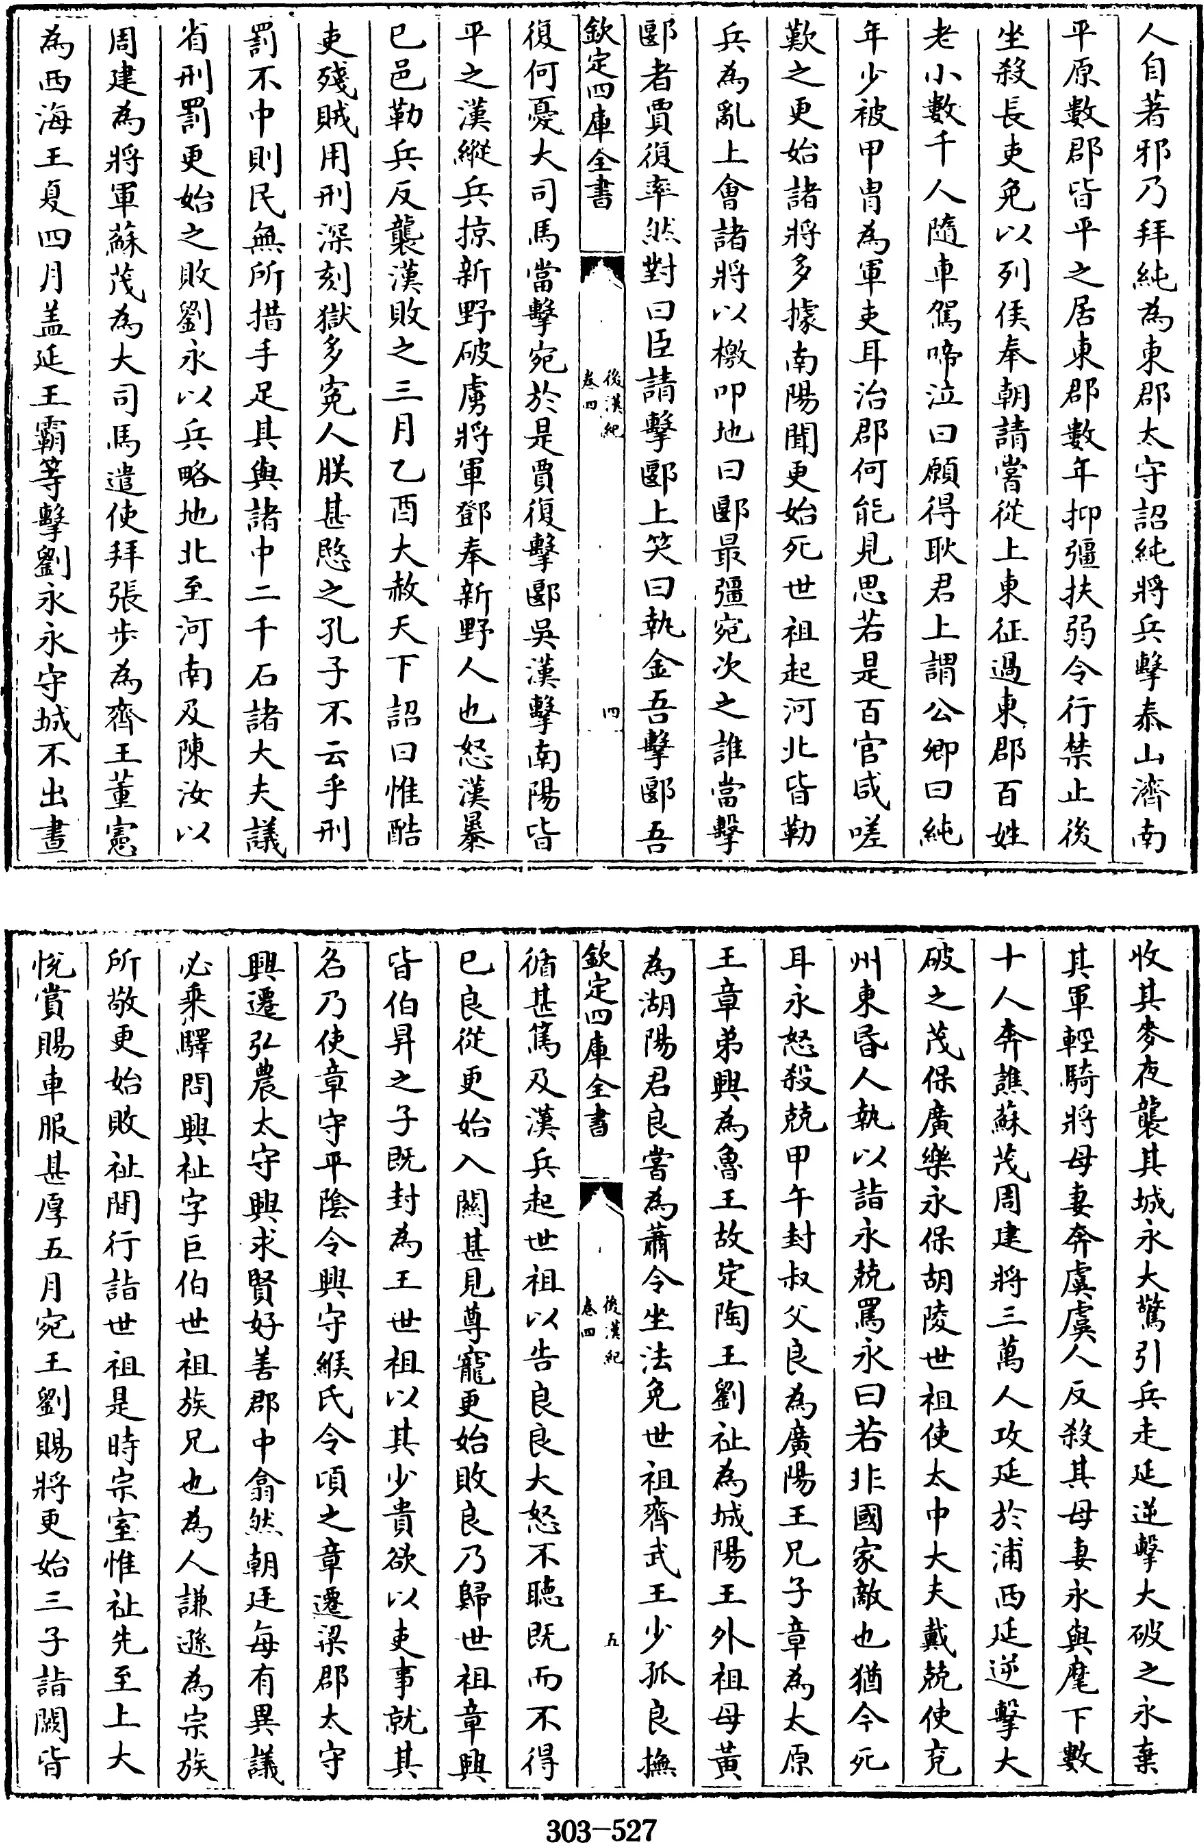 人自著邪乃拜純為東郡太守詔純將兵擊泰山濟南
平原數郡皆平之居東郡數年抑彊扶弱令行禁止後
坐殺長吏免以列侯奉朝請嘗從上東征過東郡百姓
老小數千人隨車駕啼泣曰願得耿君上謂公卿曰純
年少被甲胄為軍吏耳治郡何能見思若是百官咸嗟
歎之更始諸將多據南陽聞更始死世祖起河北皆勒
兵為亂上會諸將以檄叩地曰郾最彊宛次之誰當擊
郾者賈復率然對曰臣請擊郾上笑曰執金吾擊郾吾
欽定四庫全書
後漢紀
卷四
四
復何憂大司馬當擊宛於是賈復擊郾吳漢擊南陽皆
平之漢縱兵掠新野破虜將軍鄧奉新野人也怒漢暴
已邑勒兵反襲漢敗之三月乙酉大赦天下詔曰惟酷
吏殘賊用刑深刻獄多冤人朕甚愍之孔子不云乎刑
罰不中則民無所措手足其與諸中二千石諸大夫議
省刑罰更始之敗劉永以兵略地北至河南及陳汝以
周建為將軍蘇茂為大司馬遣使拜張步為齊王董憲
為西海王夏四月盖延王霸等擊劉永永守城不出晝
收其麥夜襲其城永大驚引兵走延逆擊大破之永棄
其軍輕騎將母妻奔虞虞人反殺其母妻永與麾下數
十人奔譙蘇茂周建將三萬人攻延於浦西延逆擊大
破之茂保廣樂永保胡陵世祖使太中大夫戴兢使兗
州東昏人執以詣永兢罵永曰若非國家敵也猶今死
耳永怒殺兢甲午封叔父良為廣陽王兄子章為太原
王章弟興為魯王故定陶王劉祉為城陽王外祖母黃
為湖陽君良嘗為蕭令坐法免世祖齊武王少孤良撫
欽定四庫全書
後漢紀
卷四
五
循甚篤及漢兵起世祖以告良良大怒不聽既而不得
已良從更始入關甚見尊寵更始敗良乃歸世祖章興
皆伯昇之子既封為王世祖以其少貴欲以吏事就其
名乃使章守平陰令興守緱氏令頃之章遷梁郡太守
興遷弘農太守興求賢好善郡中翕然朝廷每有異議
必乘驛問興祉字巨伯世祖族兄也為人謙遜為宗族
所敬更始敗祉間行詣世祖是時宗室惟祉先至上大
悅賞賜車服甚厚五月宛王劉賜將更始三子詣闕皆
303-527